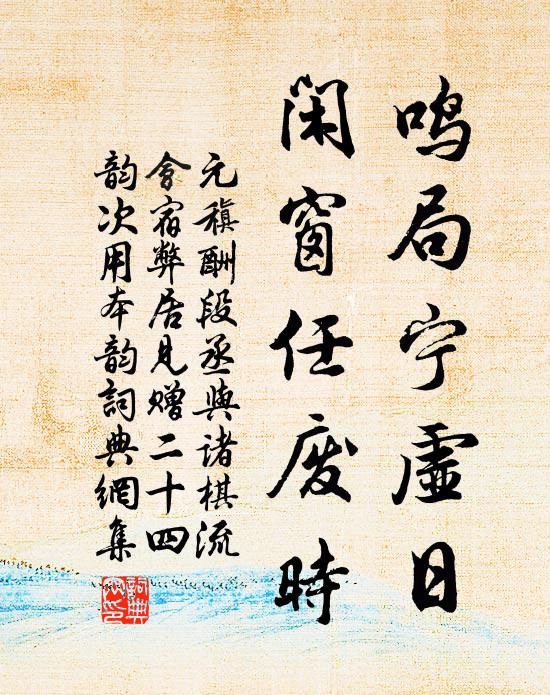 鸣局宁虚日
闲窗任废时
元稹酬段丞與诸棋流
會宿弊居見赠二十四
韵次用本韵詞典網集